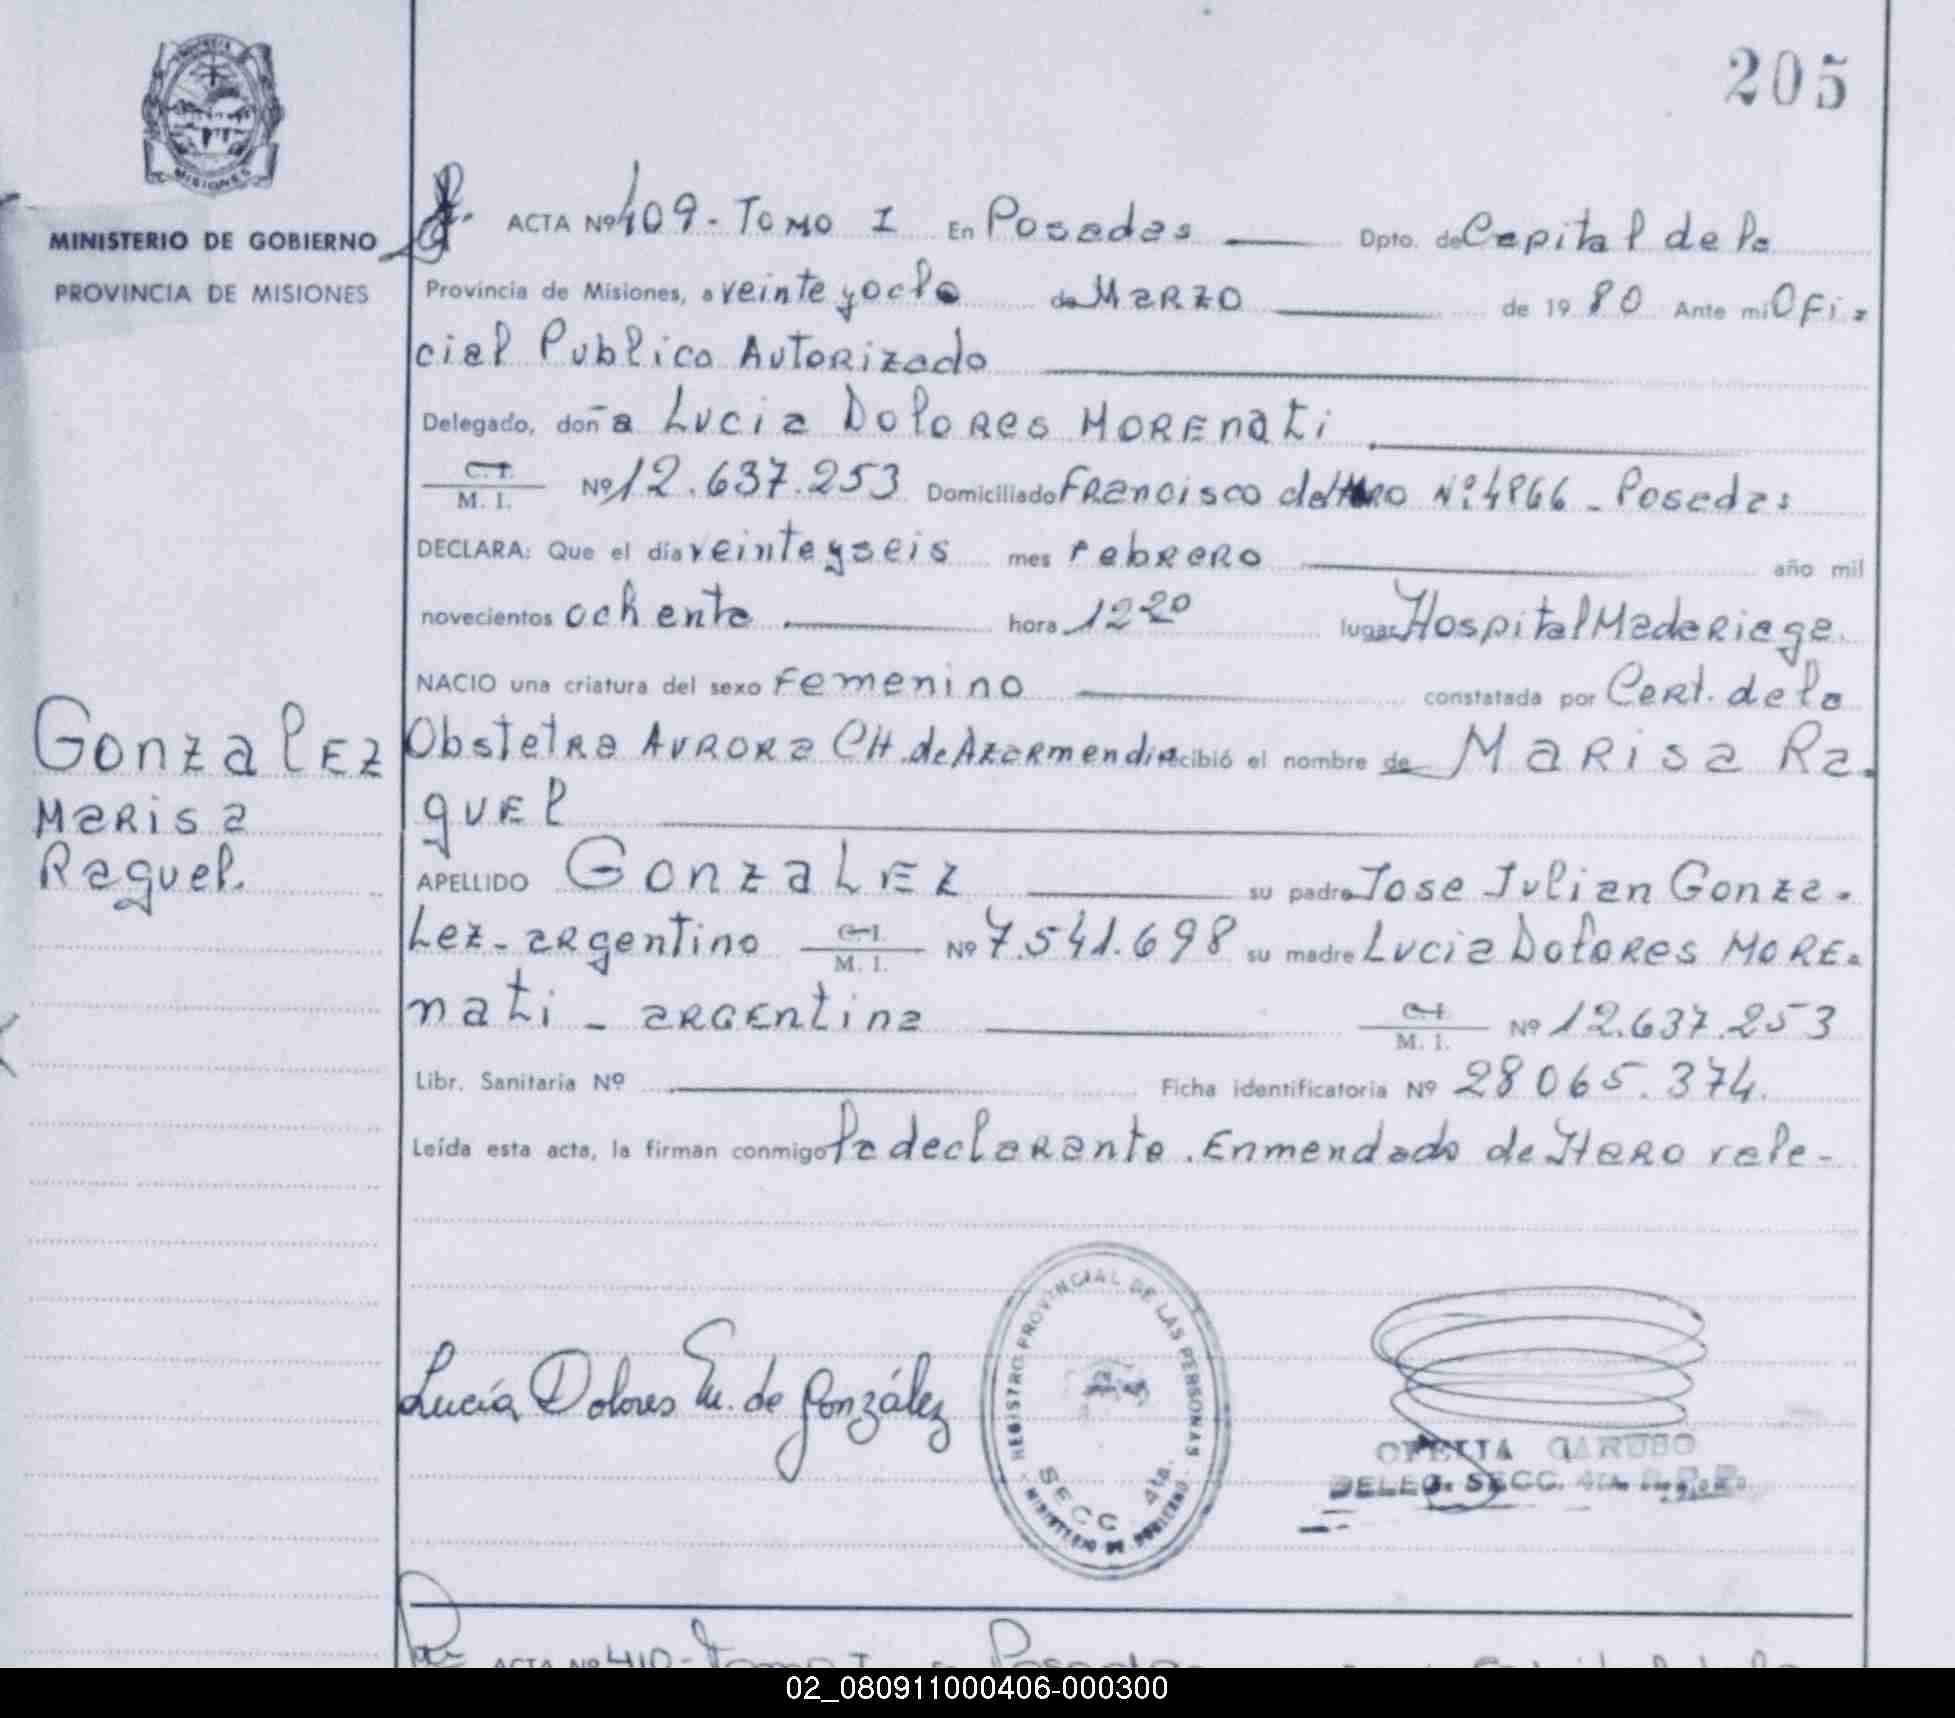 205
MISIONES
MINISTERIO DE GOBIERNO
PROVINCIA DE MISIONES
ACTA Nº 409 - TOMO I En Posadas Dpto. de Capital de la
Provincia de Misiones, a veinte y ocho de Marzo de 1980 Ante mi Ofi-
cial Publico Autorizado
Delegado, doña Lucia Dolores MORENATI
C. I.
M. I. Nº 12.637.253 Domiciliado Francisco de Haro Nº 4866 - Posadas
DECLARA: Que el día veinte y seis mes Febrero año mil
novecientos ochenta hora 12 20 lugar Hospital Madariaga
NACIO una criatura del sexo Femenino constatada por Cert. de la
Obstetra AURORA CH. de Azarmendia recibió el nombre de MARISA Ra-
quel
GonzalEZ
Marisa
Raquel.
APELLIDO GONZALEZ su padre Jose Julian Gonza-
lez - argentino C. I.
M. I. Nº 7.541.698 su madre Lucia Dolores MORE-
nati - argentina C. I.
M. I. Nº 12.637.253
Libr. Sanitaria Nº Ficha identificatoria Nº 28065.374.
Leída esta acta, la firman conmigo la declarante. Enmendado de Haro vale-
Lucía Dolores M. de González
REGISTRO PROVINCIAL DE LAS PERSONAS
SECC 4ta.
MINISTERIO DE GOBIERNO
OFELIA CARUSO
DELEG. SECC. 4ta.
ACTA Nº 410 - Tomo I En Posadas
02_080911000406-000300